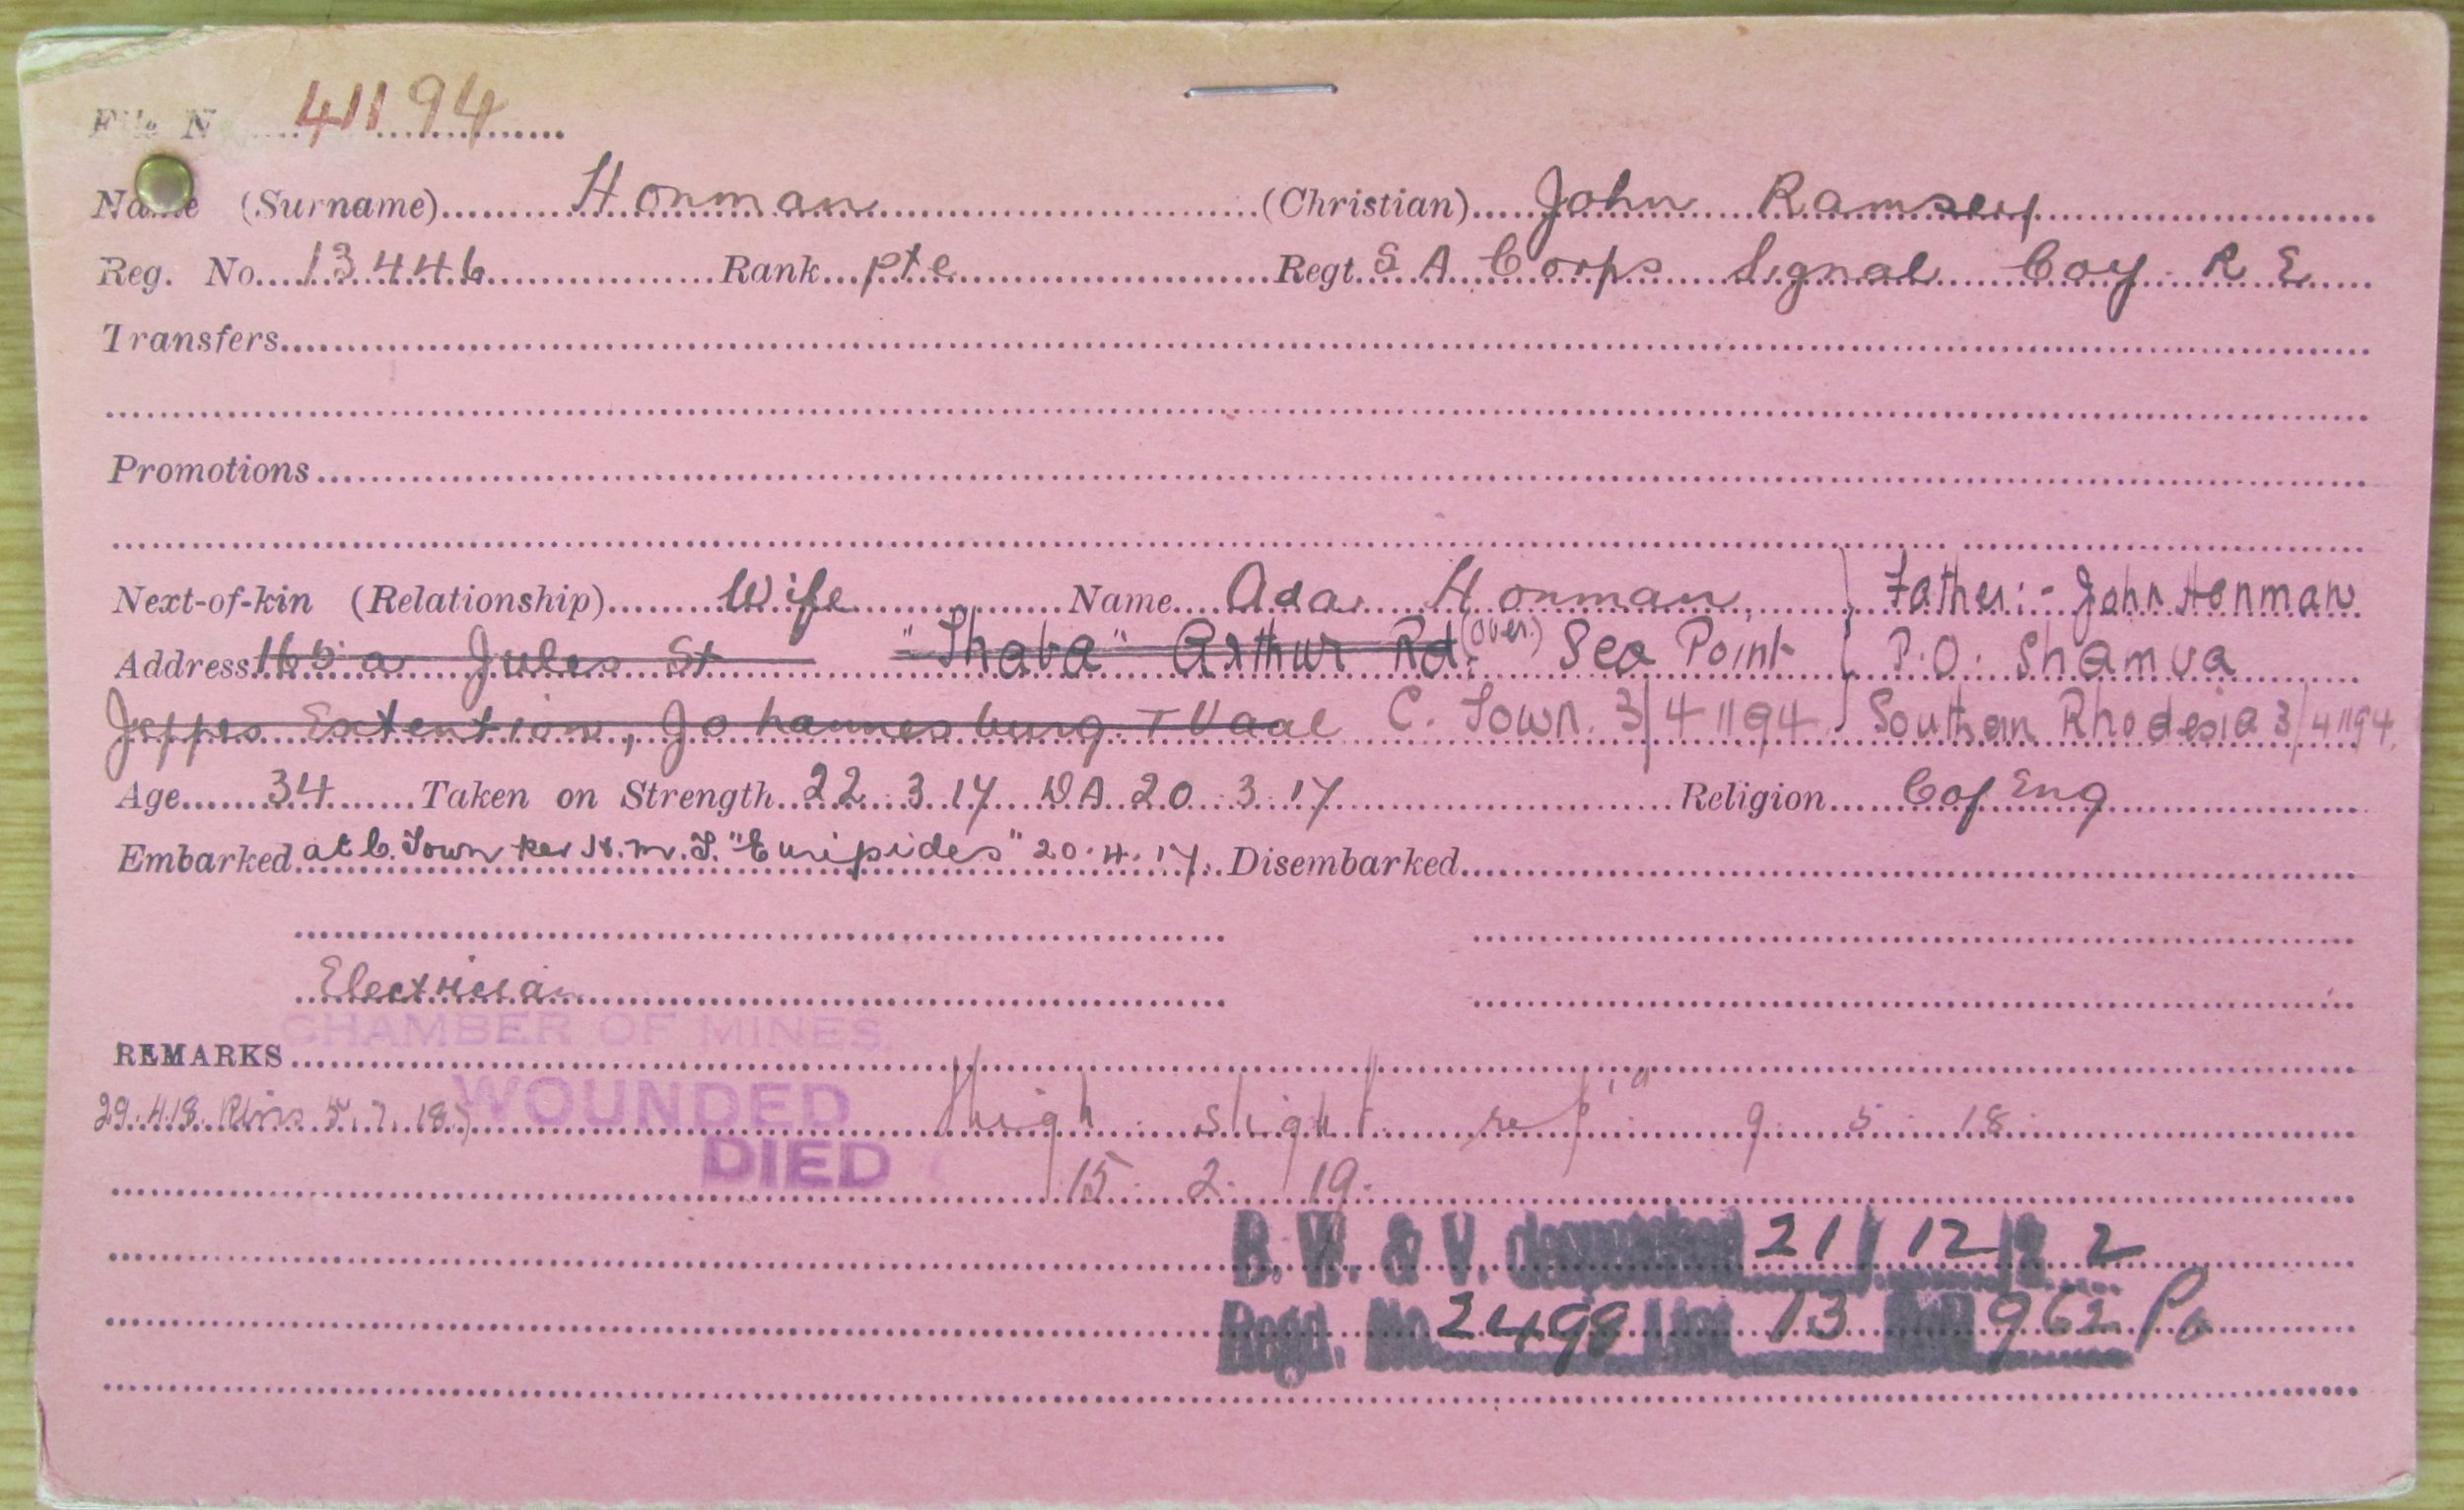 File N 41194
Name (Surname) Honman (Christian) John Ramsey
Reg. No. 13446 Rank pte Regt. S A Corps Signal Coy R E
Transfers
Promotions
Next-of-kin (Relationship) Wife Name Ada Honman, Father:- John Honman
Address 165a Jules St "Thaba" Arthur Rd. (over.) Sea Point P.O. Shamva
Jeppes Extention, Johannesburg T Vaal C. Town. 3/41194 Southern Rhodesia 3/41194.
Age 34 Taken on Strength 22 3 17 DA 20 3 17 Religion C of Eng
Embarked at C. Town per H.M.T. "Euripides" 20.4.17. Disembarked
Electrician
CHAMBER OF MINES.
REMARKS
29.4.18. 5.7.18.) WOUNDED Thigh slight 9 5 18
DIED 15 2 19.
B. W. & V. despatched 21/12/22
Regd. No. 2498 List 13 962 Po